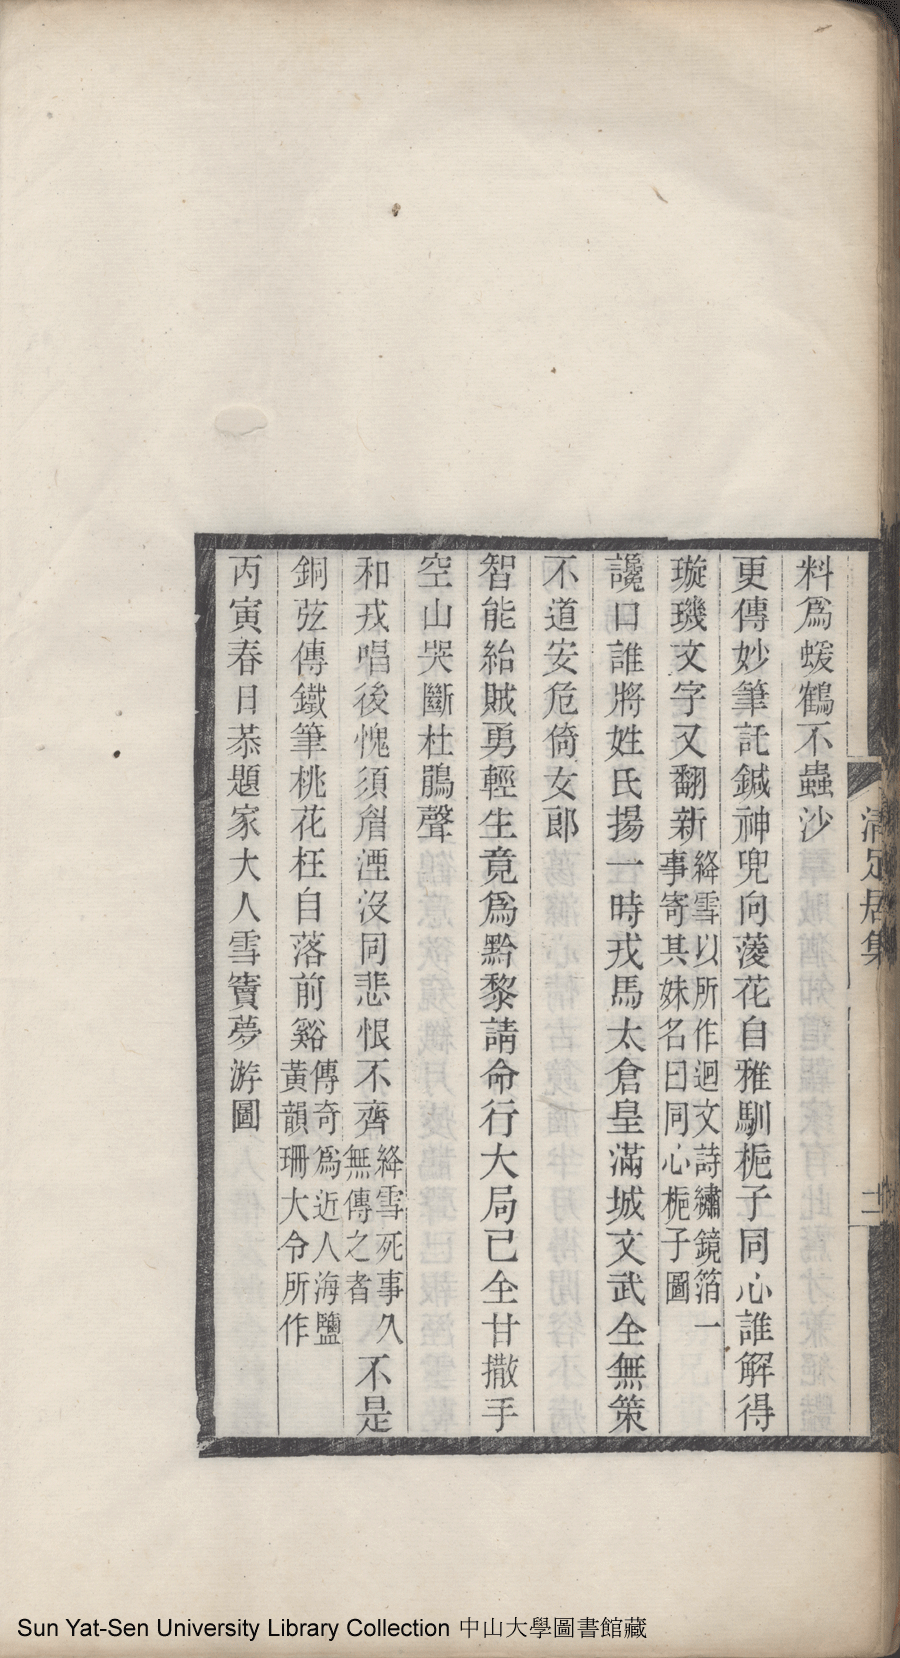 料爲蝯鶴不蟲沙
更傳妙筆託鍼神兜向蔆花自雅馴梔子同心誰解得
璇璣文字又翻新絳雪以所作迴文詩繡鏡箔一事寄其妹名曰同心梔子圖
讒口誰將姓氏揚一時戎馬太倉皇滿城文武全無策
不道安危倚女郎
智能紿賊勇輕生竟爲黔黎請命行大局已全甘撒手
空山哭斷杜鵑聲
和戎唱後愧須眉湮沒同悲恨不齊絳雪死事久無傳之者不是
銅弦傳鐵筆桃花枉自落前谿傳奇爲近人海鹽黃韻珊大令所作
丙寅春日恭題家大人雪竇夢游圖
清足居集
二
Sun Yat-Sen University Library Collection 中山大學圖書館藏